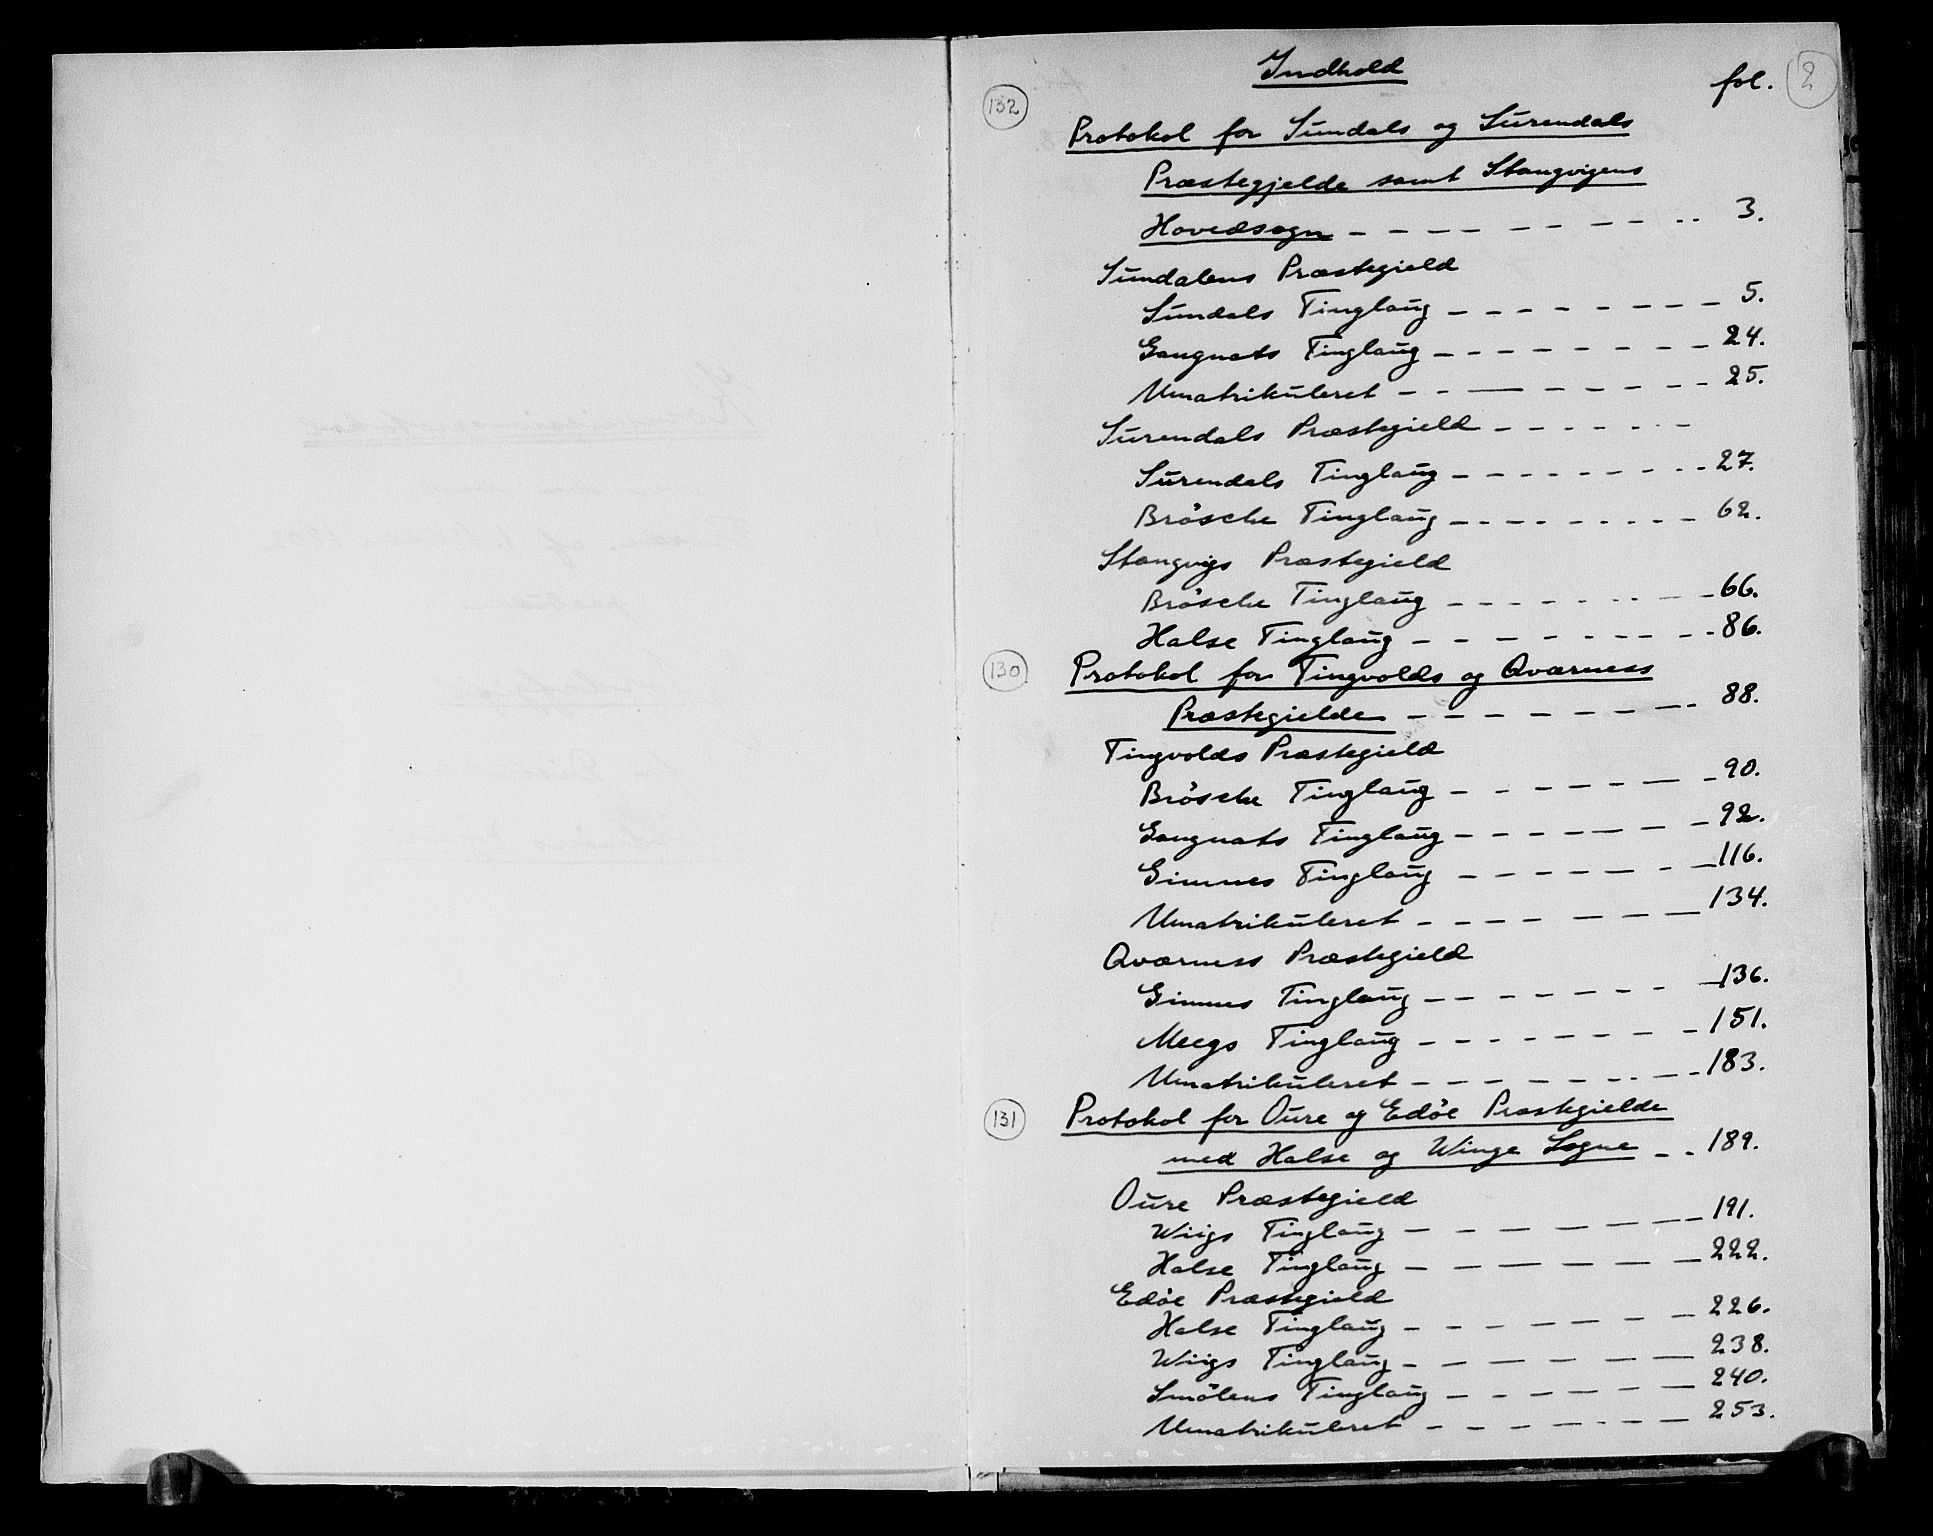 Indhold
fol. 2
132
Protokol for Sundals og Surendals
Præstegjelde samt Stangvigens
Hovedsogn 3.
Sundalens Præstegield
Sundals Tinglaug 5.
Gangnats Tinglaug 24.
Umatrikuleret 25.
Surendals Præstegield
Surendals Tinglaug 27.
Brösche Tinglaug 62.
Stangvigs Præstegield
Brösche Tinglaug 66.
Halse Tinglaug 86.
130
Protokol for Tingvolds og Qværness
Præstegielde 88.
Tingvolds Præstegield
Brösche Tinglaug 90.
Gangnats Tinglaug 92.
Gimnes Tinglaug 116.
Umatrikuleret 134.
Qværness Præstegield
Gimnes Tinglaug 136.
Meegs Tinglaug 151.
Umatrikuleret 183.
131
Protokol for Oure og Edöe Præstegielde
med Halse og Winge Sogne 189.
Oure Præstegield
Wiigs Tinglaug 191.
Halse Tinglaug 222.
Edöe Præstegield
Halse Tinglaug 226.
Wiigs Tinglaug 238.
Smölens Tinglaug 240.
Umatrikuleret 253.